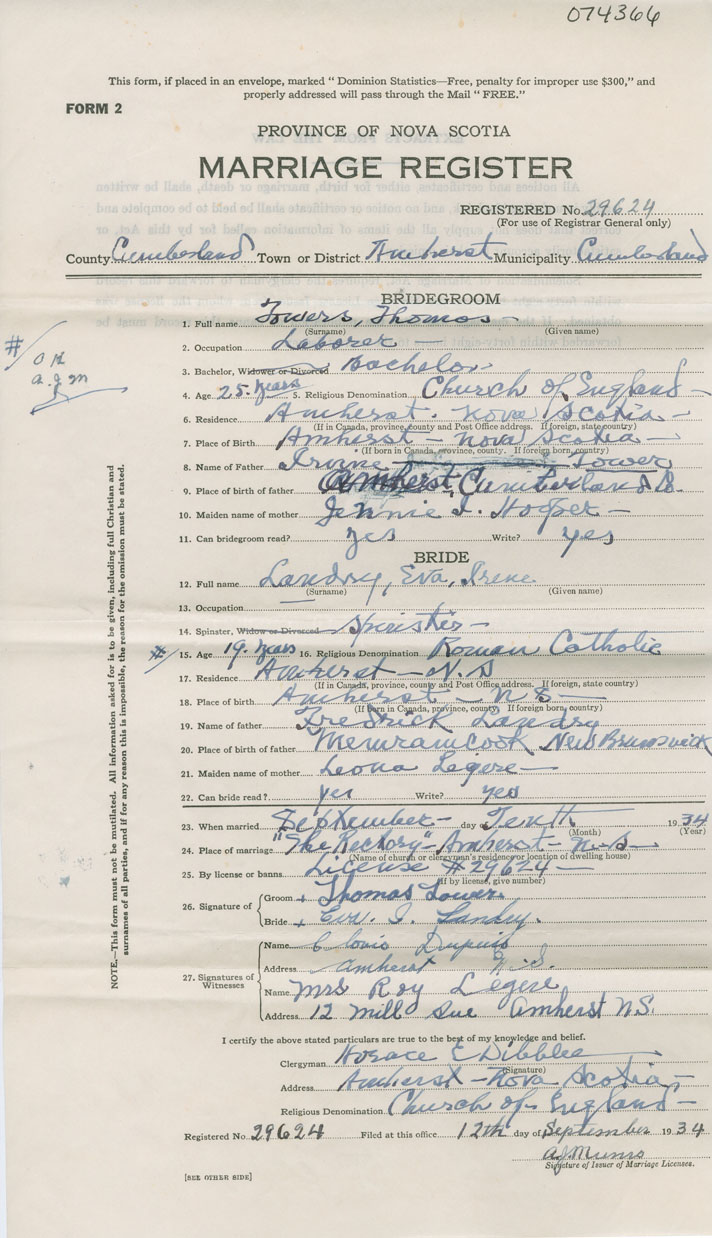 074366
This form, if placed in an envelope, marked "Dominion Statistics—Free, penalty for improper use $300," and
properly addressed will pass through the Mail "FREE."
FORM 2
PROVINCE OF NOVA SCOTIA
MARRIAGE REGISTER
REGISTERED No. 29624
(For use of Registrar General only)
County Cumberland Town or District Amherst Municipality Cumberland
BRIDEGROOM
1. Full name Towers, Thomas
(Surname) (Given name)
2. Occupation Laborer —
3. Bachelor, Widower or Divorced Bachelor
# OK
a.J.M
4. Age 25 years 5. Religious Denomination Church of England —
6. Residence Amherst. Nova Scotia —
(If in Canada, province, county and Post Office address. If foreign, state country)
7. Place of Birth Amherst — Nova Scotia —
(If born in Canada, province, county. If foreign born, country)
8. Name of Father Irvine Tower
9. Place of birth of father Amherst, Cumberland
10. Maiden name of mother Jennie I. Hooper —
11. Can bridegroom read? yes Write? yes
BRIDE
12. Full name Landry, Eva, Irene
(Surname) (Given name)
13. Occupation —
14. Spinster, Widow or Divorced Spinster —
# 15. Age 19 years 16. Religious Denomination Roman Catholic
17. Residence Amherst — N.S
(If in Canada, province, county and Post Office address. If foreign, state country)
18. Place of birth Amherst — N S —
(If born in Canada, province, county. If foreign born, country)
19. Name of father Fredrick Landry
20. Place of birth of father Memramcook New Brunswick
21. Maiden name of mother Leona Legere —
22. Can bride read? yes Write? yes
23. When married September — day of Tenth 1934
(Month) (Year)
24. Place of marriage "The Rectory" Amherst — N.S —
(Name of church or clergyman's residence or location of dwelling house)
25. By license or banns License # 29624 —
(If by license, give number)
26. Signature of Groom + Thomas Tower
Bride + Eva. I. Landry.
27. Signatures of Witnesses
Name Clovis Dupuis
Address Amherst N.S.
Name Mrs Roy Legere
Address 12 Mill Ave Amherst N.S.
I certify the above stated particulars are true to the best of my knowledge and belief.
Clergyman Horace E Dibblee
(Signature)
Address Amherst — Nova Scotia —
Religious Denomination Church of England —
Registered No. 29624 Filed at this office 12th day of September 1934
AJ Munro
Signature of Issuer of Marriage Licenses.
[SEE OTHER SIDE]
NOTE.—This form must not be mutilated. All information asked for is to be given, including full Christian and
surnames of all parties, and if for any reason this is impossible, the reason for the omission must be stated.